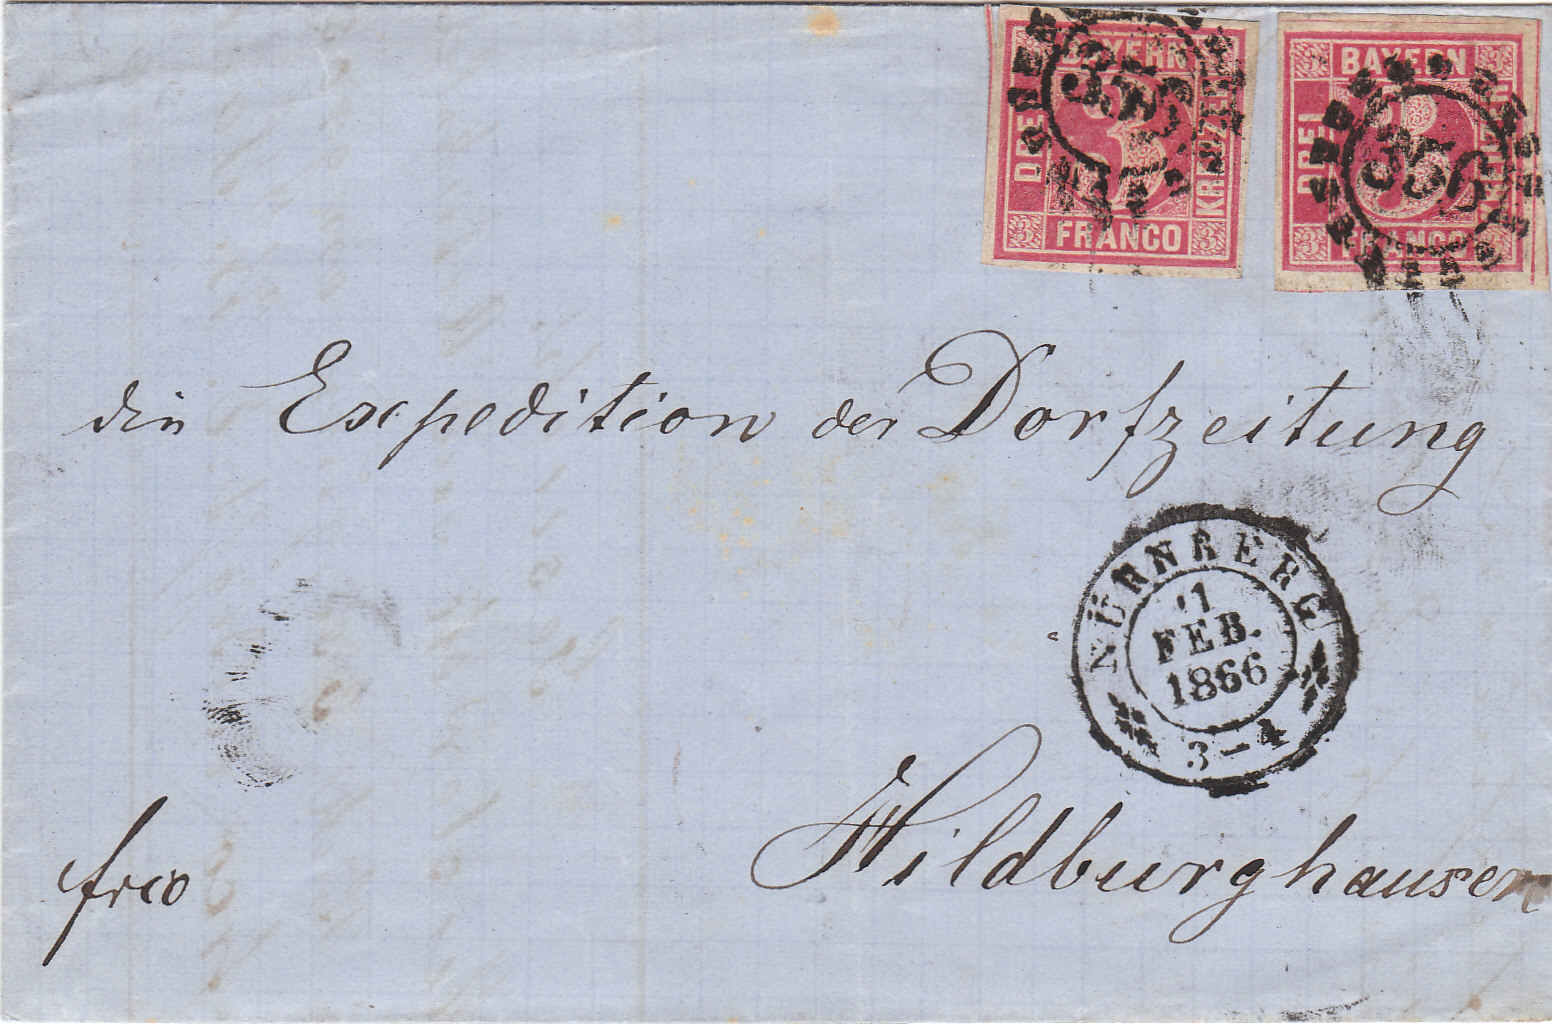 BAYERN
DREI
KREUZER
FRANCO
3
3
3
356
BAYERN
DREI
KREUZER
FRANCO
3
3
3
356
die Expedition der Dorfzeitung
NÜRNBERG
1
FEB.
1866
3-4
Hildburghausen
frco